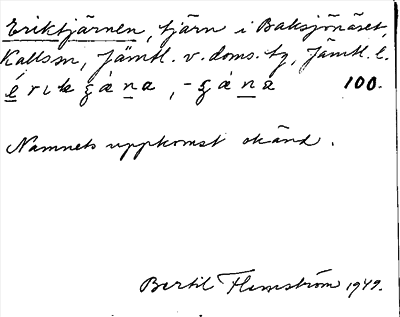 Eriktjärnen, tjärn i Baksjönäset,
Kallssn, Jämtl. v. doms. tg, Jämtl. l.
100.
Namnets uppkomst okänd.
Bertil Flemström 1949.